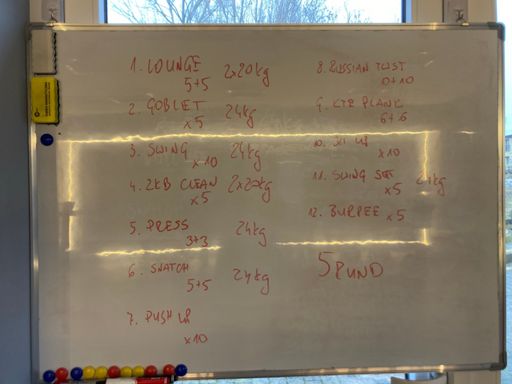 1. LOUNGE 2x20kg
5+5
2. GOBLET 24kg
x5
3. SWING 24kg
x10
4. 2KB CLEAN 2x20kg
x5
5. PRESS 24kg
3+3
6. SNATCH 24kg
5+5
7. PUSH UP
x10
8. RUSSIAN TWIST
10+10
9. KTE PLANK
6+6
10. SIT UP
x10
11. SWING SQT 24kg
x5
12. BURPEE x5
5 RUND